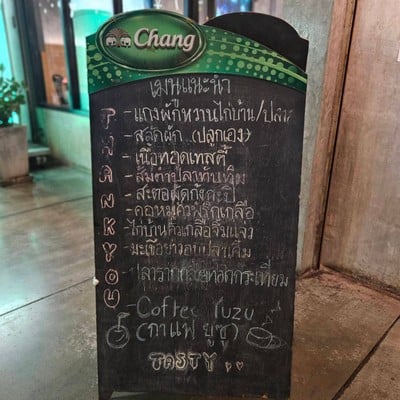 Chang
เมนูแนะนำ
THANK YOU
- แกงผักหวานไก่บ้าน/ปลา
- สลัดผัก (ปลูกเอง)
- เนื้อทอดเทสตี้
- ส้มตำปลาทับทิม
- สะตอผัดกุ้งกะปิ
- คอหมูคั่วพริกเกลือ
- ไก่บ้านคั่วเกลือจิ้มแจ่ว
- ทอดกระเทียม
- Coffee Yuzu
(กาแฟ ยูซุ)
TASTY